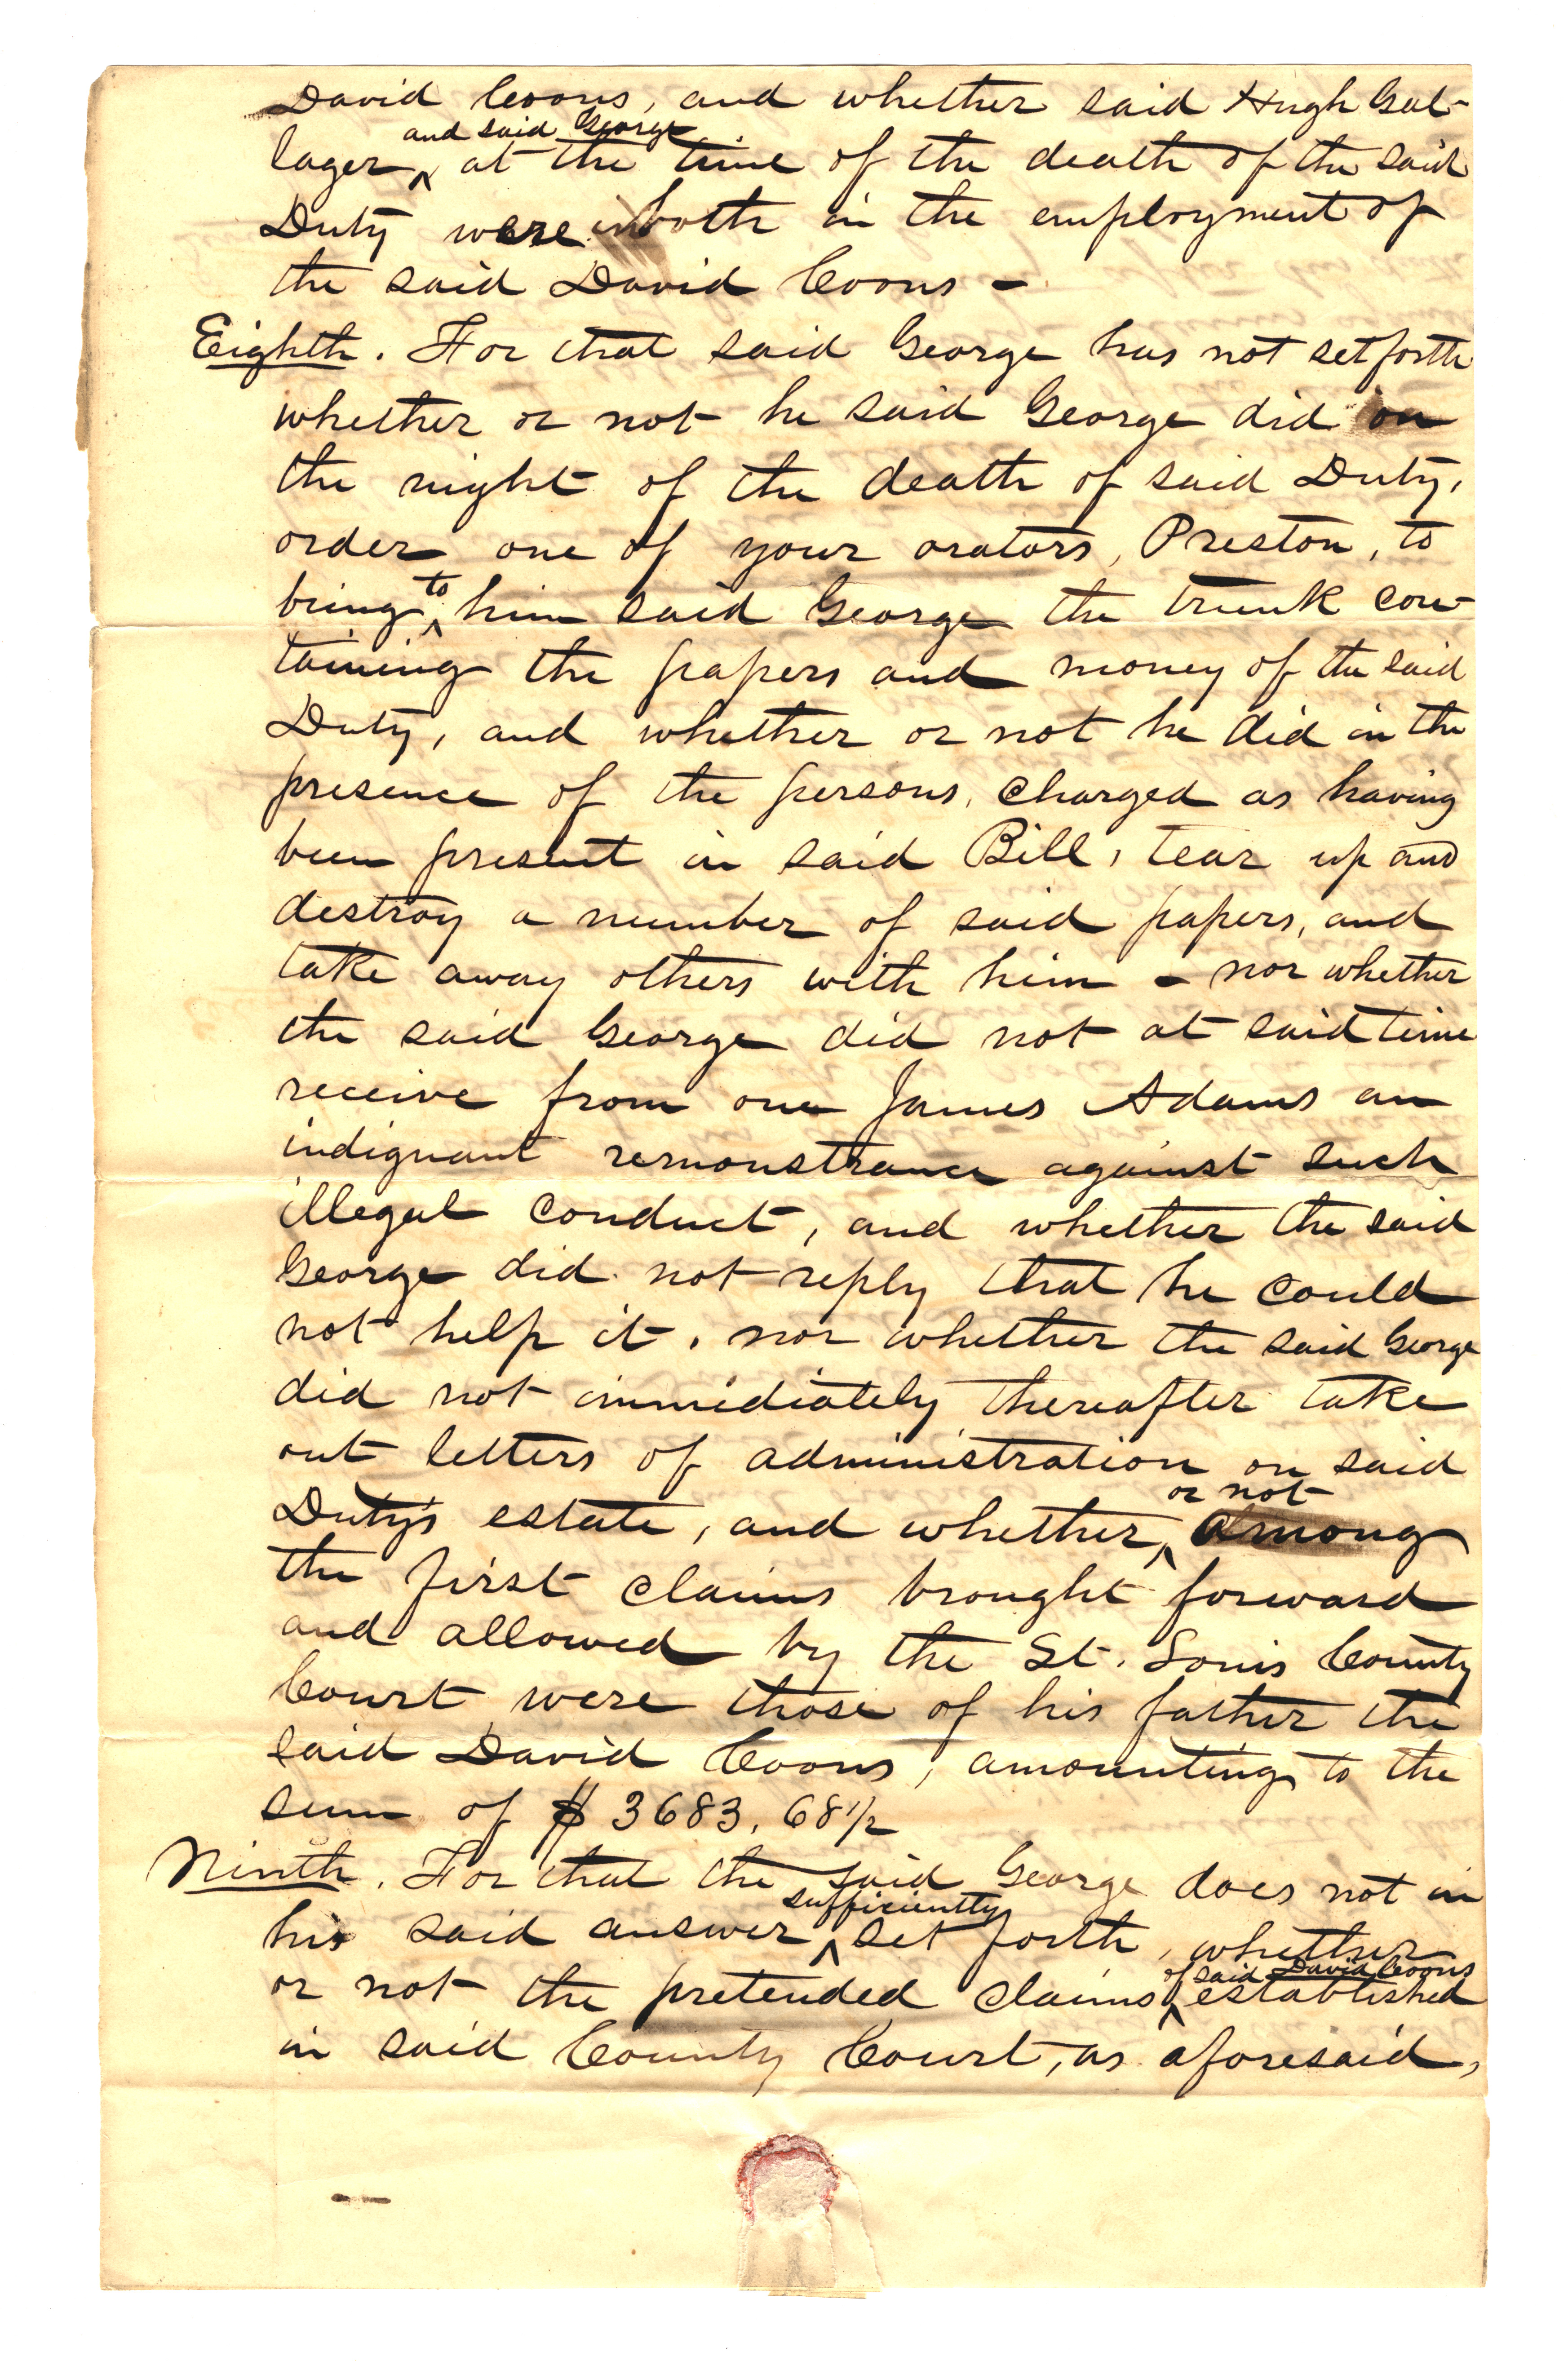 David Coons, and whether said Hugh Gal-
and said George
lager at the time of the death of the said
Duty were both in the employment of
the said David Coons -
Eighth. For that said George has not set forth
whether or not he said George did on
the night of the death of said Duty,
order one of your orators, Preston, to
to
bring him said George the trunk con-
taining the papers and money of the said
Duty, and whether or not he did in the
presence of the persons, charged as having
been present in said Bill, tear up and
destroy a number of said papers, and
take away others with him - nor whether
the said George did not at said time
receive from one James Adams an
indignant remonstrance against such
illegal conduct, and whether the said
George did not reply that he could
not help it, nor whether the said George
did not immediately thereafter take
out letters of administration on said
or not
Duty's estate, and whether among
the first claims brought forward
and allowed by the St. Louis County
Court were those of his father the
said David Coons, amounting to the
sum of $ 3683.68 1/2
Ninth. For that the said George does not in
sufficiently
his said answer set forth, whether
of said David Coons
or not the pretended claims established
in said County Court, as aforesaid,